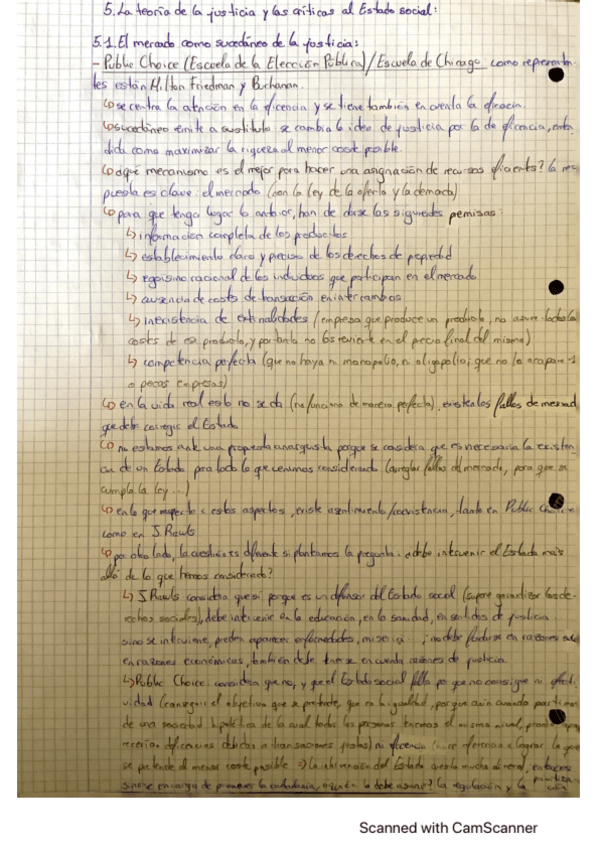 5. La teoría de la justicia y las críticas al Estado social:
5.1. El mercado como sucedáneo de la justicia:
- Public Choice (Escuela de la Elección Pública)/Escuela de Chicago como representan-
tes están Milton Friedman y Buchanan.
↳ se centra la atención en la eficiencia y se tiene también en cuenta la eficacia.
↳ sucedáneo emite a sustituto se cambia la idea de justicia por la de eficiencia, enten
dida como maximizar la riqueza al menor coste posible.
↳ ¿qué mecanismo es el mejor para hacer una asignación de recursos eficiente? la res
puesta es clave: el mercado (con la ley de la oferta y la demada)
↳ para que tenga lugar lo anterior, han de darse las siguientes pemisas:
↳ información completa de los productos
↳ establecimiento claro y preciso de los derechos de propiedad
↳ egoísmo racional de los individuos que participan en el mercado
↳ ausencia de costes de transación en intercambios
↳ inexistencia de externalidades (empresa que produce un producto, no asume todos los
costes de ese producto, y por tanto no los revierte en el precio final del mismo)
↳ competencia perfecta (que no haya ni monopolio, ni oligopolio; que no lo acaparen 1
o pocas empresas)
↳ en la vida real esto no se da (no funciona de manera perfecta), existen los fallos de mercad
que debe corregir el Estado
↳ no estamos ante una propuesta anarquista porque se considera que es necesaria la existen-
cia de un Estado para todo lo que venimos considerando (arreglar fallos del mercado, para que se
cumpla la ley...)
↳ en lo que respecta a estos aspectos, existe asentimiento/coexistencia, tanto en Public Choice
como en J. Rawls
↳ por otro lado, la cuestión es diferente si plantamos la pregunta: ¿debe intervenir el Estado más
allá de lo que hemos considerado?
↳ J. Rawls considera que sí porque es un defensor del Estado social (supone garantizar los de-
rechos sociales), debe intervenir en la educación, en la sanidad, en sentidos de justicia
si no se interviene, pueden aparecer enfermedades, miseria...; no debe fundarse en razones
en razones económicas, también debe tenerse en cuenta razones de justicia.
↳ Public Choice: considera que no, y que el Estado social falla porque no consigue ni efecti-
vidad (conseguir el objetivo que se pretende, que es la igualdad, porque aún cuando partimos
de una sociedad hipotética de la cual todas las personas tenemos el mismo nivel,
diferencias debidas a transacciones justas) ni eficiencia (hace referencia a lograr lo que
se pretende al menor coste posible => la intervención del Estado cuesta mucho dinero), entonces
si no se encarga de promover la ciudadanía, ¿quién lo debe asumir? la regulación y la privatiza-
ción
Scanned with CamScanner